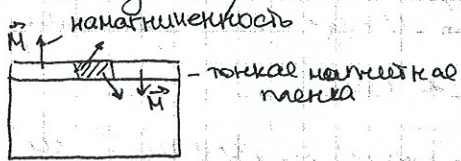 намагниченность
M
M
- тонкая магнитная
пленка